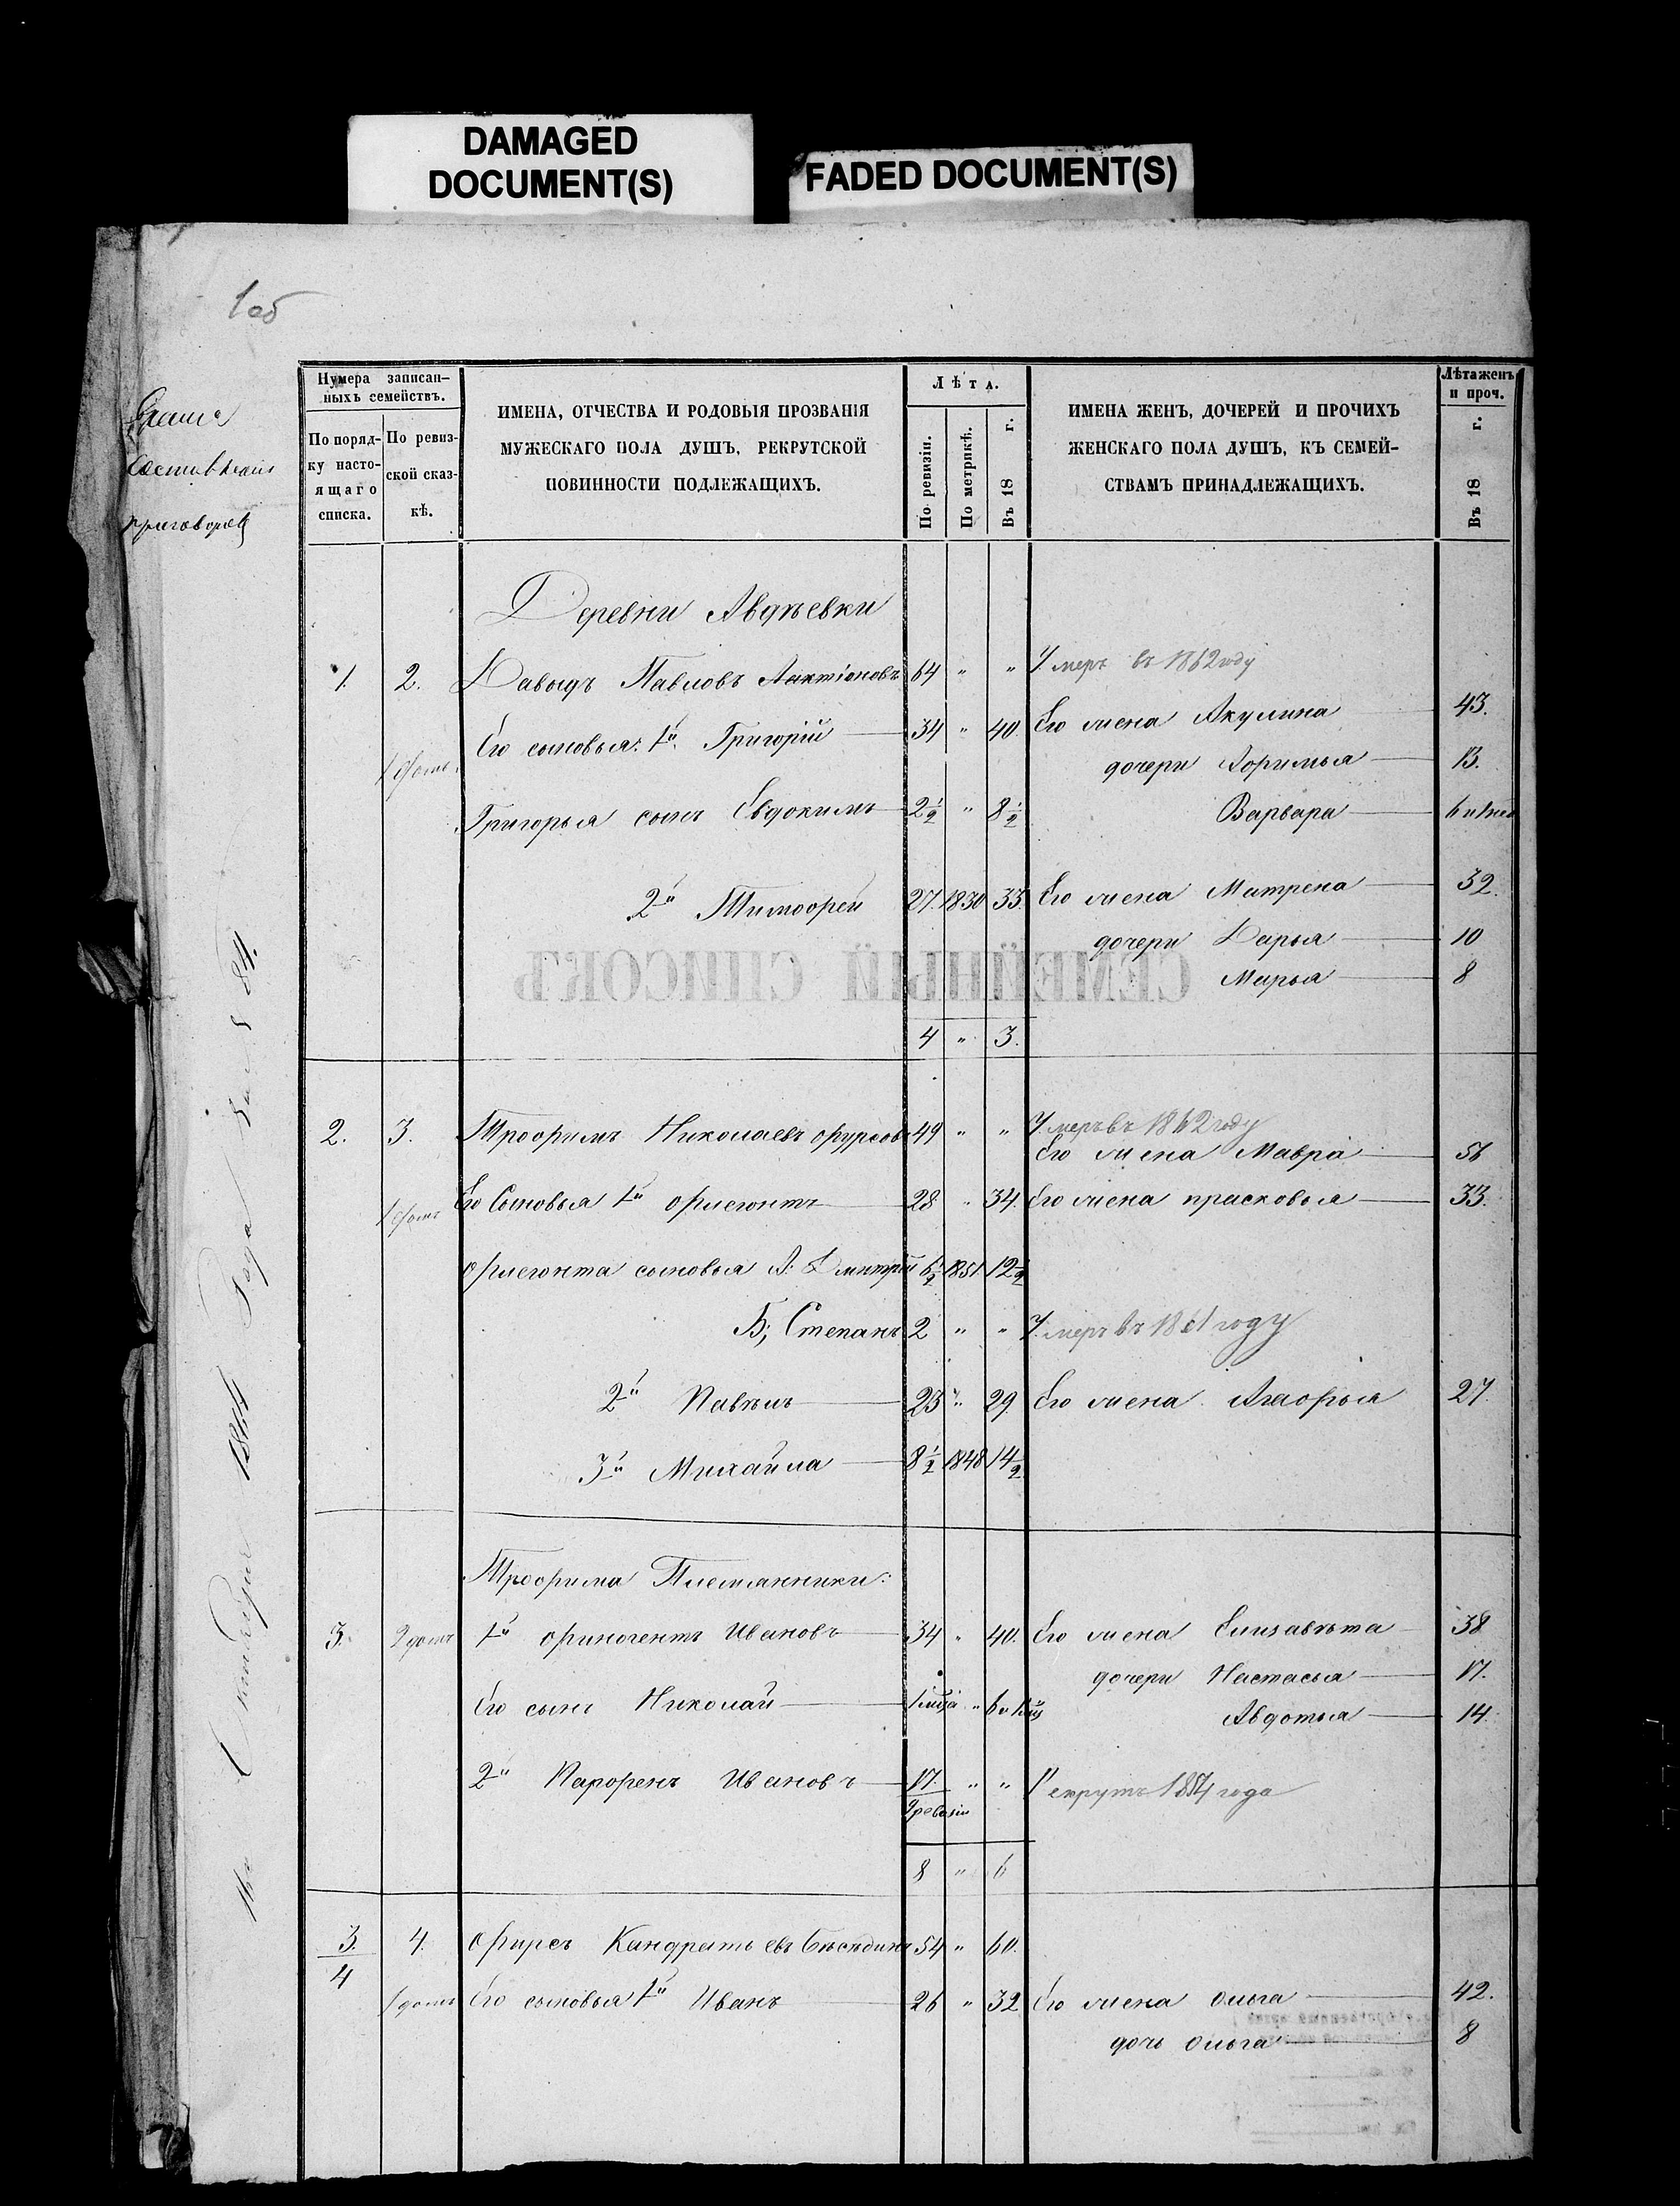 DAMAGED
DOCUMENT(S)
FADED DOCUMENT(S)
1 об
Нумера записан-
ныхъ семействъ.
По поряд-
ку насто-
ящаго
списка.
По ревиз-
ской сказ-
кѣ.
ИМЕНА, ОТЧЕСТВА И РОДОВЫЯ ПРОЗВАНІЯ
МУЖЕСКАГО ПОЛА ДУШЪ, РЕКРУТСКОЙ
ПОВИННОСТИ ПОДЛЕЖАЩИХЪ.
Лѣта.
По ревизіи.
По метрикѣ.
Въ 18 г.
ИМЕНА ЖЕНЪ, ДОЧЕРЕЙ И ПРОЧИХЪ
ЖЕНСКАГО ПОЛА ДУШЪ, КЪ СЕМЕЙ-
СТВАМЪ ПРИНАДЛЕЖАЩИХЪ.
Лѣта женъ
и проч.
Въ 18 г.
приговоровъ
Деревни Авдѣевки
1. 2. Давыдъ Павловъ Лактіоновъ 64 " " Умеръ въ 1862 году
Его сыновья: 1й Григорій 34 " 40. Его жена Акулина 43.
дочери 13.
Григорья сынъ Евдокимъ 2½ " 8½ Варвара
2й Тимофей 27. 1830 33. Его жена Матрена 32.
дочери Дарья 10
СЕМЕЙНЫЙ СПИСОКЪ
Марья 8
4 " 3.
2. 3. Трофимъ Николаевъ Фурсовъ 49 " " Умеръ въ 1862 году
Его жена Мавра 56
Его Сыновья 1й Флегонтъ 28 " 34. Его жена Прасковья 33.
Флегонта сыновья А: Дмитрій 6½ 1851 12½
Б; Степанъ 2 " " Умеръ въ 1861 году
2й Павелъ 23 " 29 Его жена Агафья 27.
3й Михайла 8½ 1848 14½
Трофима Племянники:
3. 2 домъ 1й Финогентъ Ивановъ 34 " 40. Его жена Елизавѣта 38
дочери Настасья 17.
Его сынъ Николай
Авдотья 14
2й Парфенъ Ивановъ 17. " " Рекрутъ 1854 года
8 " 6
3. 4. Фирсъ Кандратьевъ Бѣсѣдинъ 54 " 60.
4
1 домъ Его сыновья 1й Иванъ 26 " 32 Его жена Ольга 42.
дочь Ольга 8